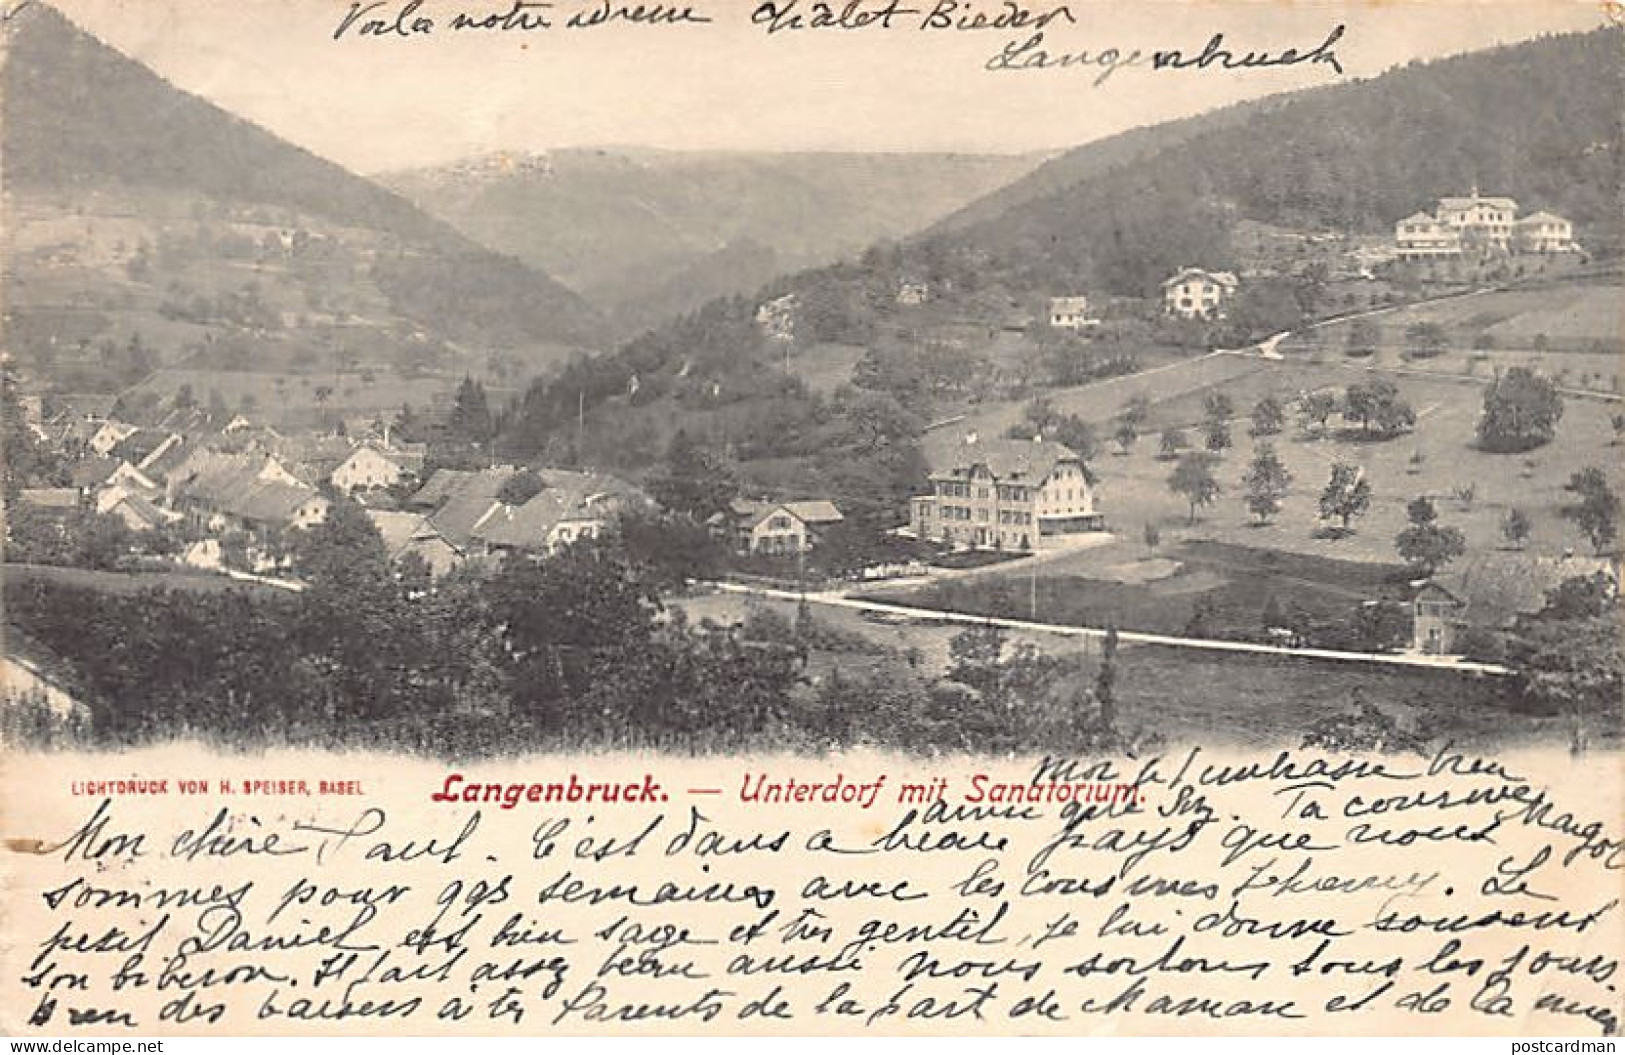 Voila notre adresse Châlet Bieder
Langenbruck
LICHTDRUCK VON H. SPEISER, BASEL
Langenbruck. — Unterdorf mit Sanatorium.
Moi je t'embrasse bien
ainsi que Suz. Ta cousine Margot
Mon chère Paul. C'est dans a beau pays que nous
sommes pour qqs semaines avec les cousines. Le
petit Daniel est bien sage et très gentil, je lui donne souvent
son biberon. Il fait assez beau aussi nous sortons tous les jours
bien des baisers à tes Parents de la part de Maman et de la mienne
postcardman
delcampe.net